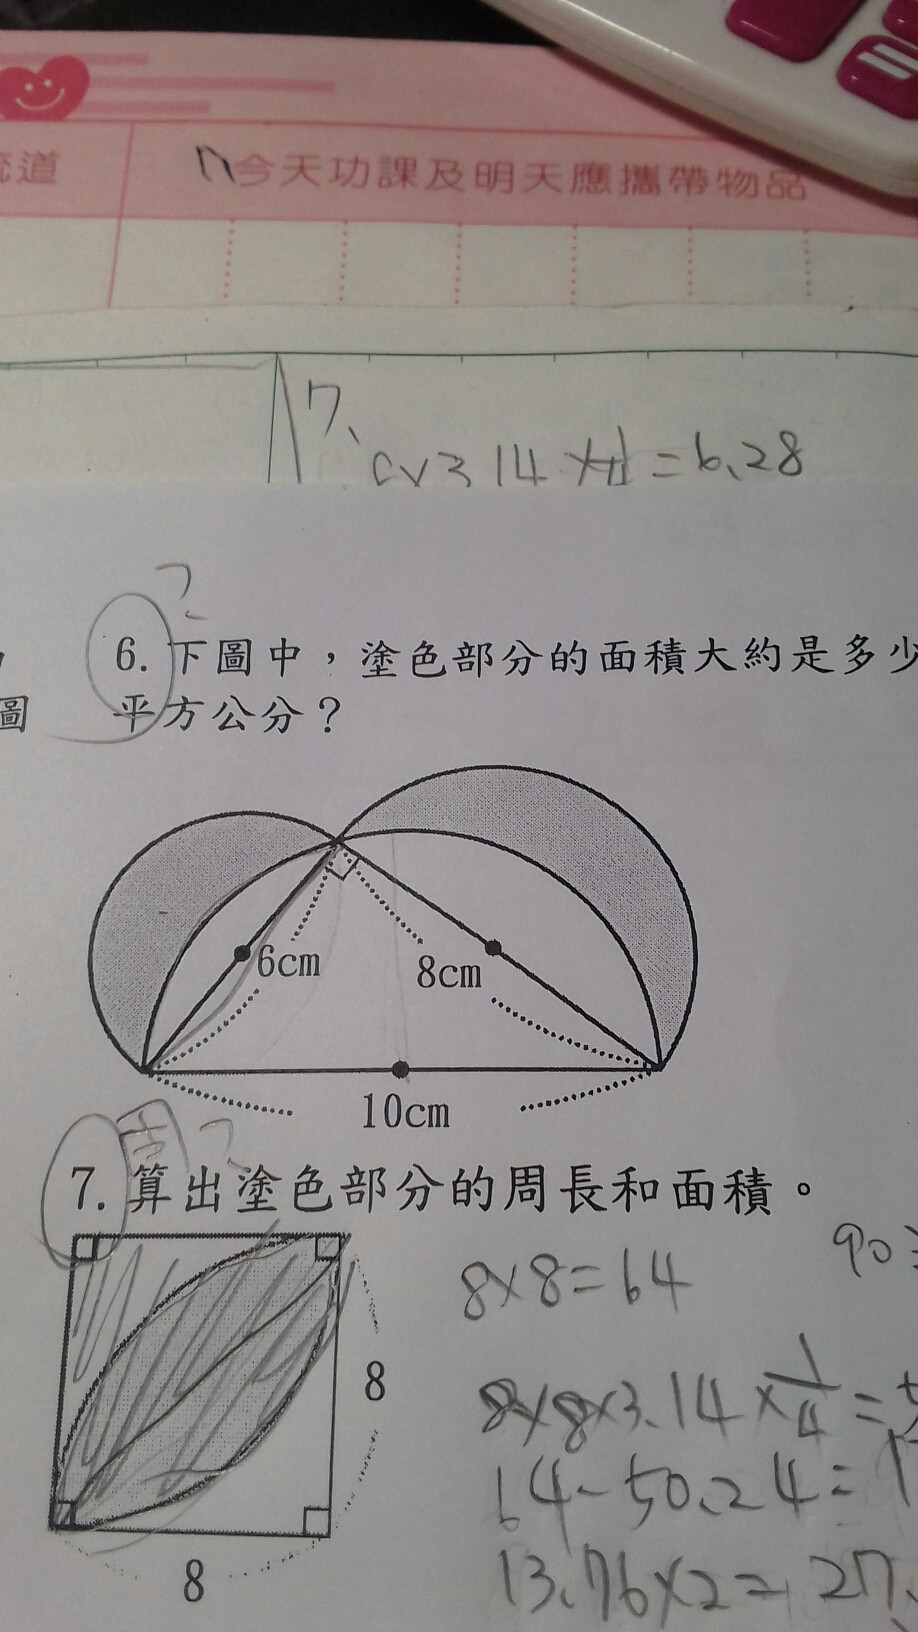 道
今天功課及明天應攜帶物品
7、
3.14 × = 6.28
?
6. 下圖中，塗色部分的面積大約是多少
圖
平方公分？
6cm
8cm
10cm
?
7. 算出塗色部分的周長和面積。
90
8×8=64
8
8×8×3.14×1/4=
64-50.24=1
13.76×2=27.
8